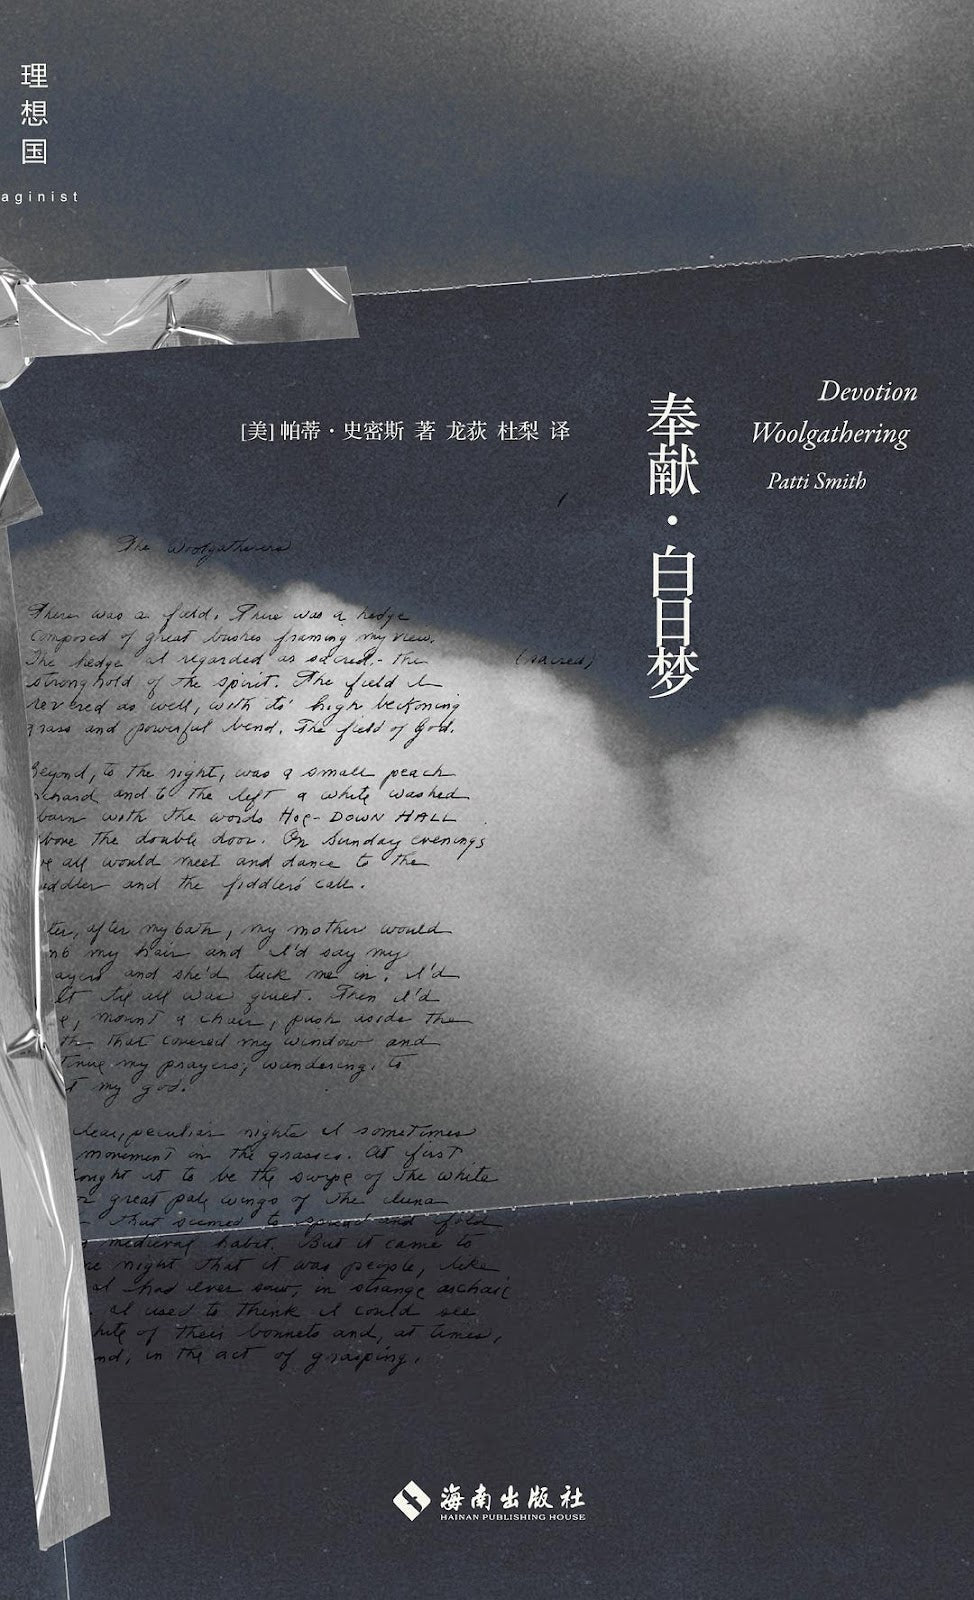 理想国
aginist
Devotion
Woolgathering
Patti Smith
奉献·白日梦
[美] 帕蒂·史密斯 著 龙荻 杜梨 译
The Woolgatherers
There was a field. There was a hedge
composed of great bushes framing my view.
The hedge I regarded as sacred - the
(sacred)
stronghold of the spirit. The field I
revered as well, with its' high beckoning
grass and powerful bend. The field of God.
Beyond, to the right, was a small peach
rchard and to the left a white washed
barn with the words HOE-DOWN HALL
above the double door. On Sunday evenings
we all would meet and dance to the
iddler and the fiddler's call.
ter, after my bath, my mother would
mb my hair and I'd say my
ayers and she'd tuck me in. I'd
it til all was quiet. Then I'd
e, mount a chair, push aside the
th that covered my window and
tinue my prayers; wandering, to
t my god.
clear, peculiar nights I sometimes
movement in the grasses. At first
ought it to be the swipe of the white
or great pale wings of the luna
that seemed to spread and fold
medieval habit. But it came to
me night that it was people, like
I had ever saw, in strange archaic
I used to think I could see
hite of their bonnets and, at times,
nd, in the act of grasping.
海南出版社
HAINAN PUBLISHING HOUSE